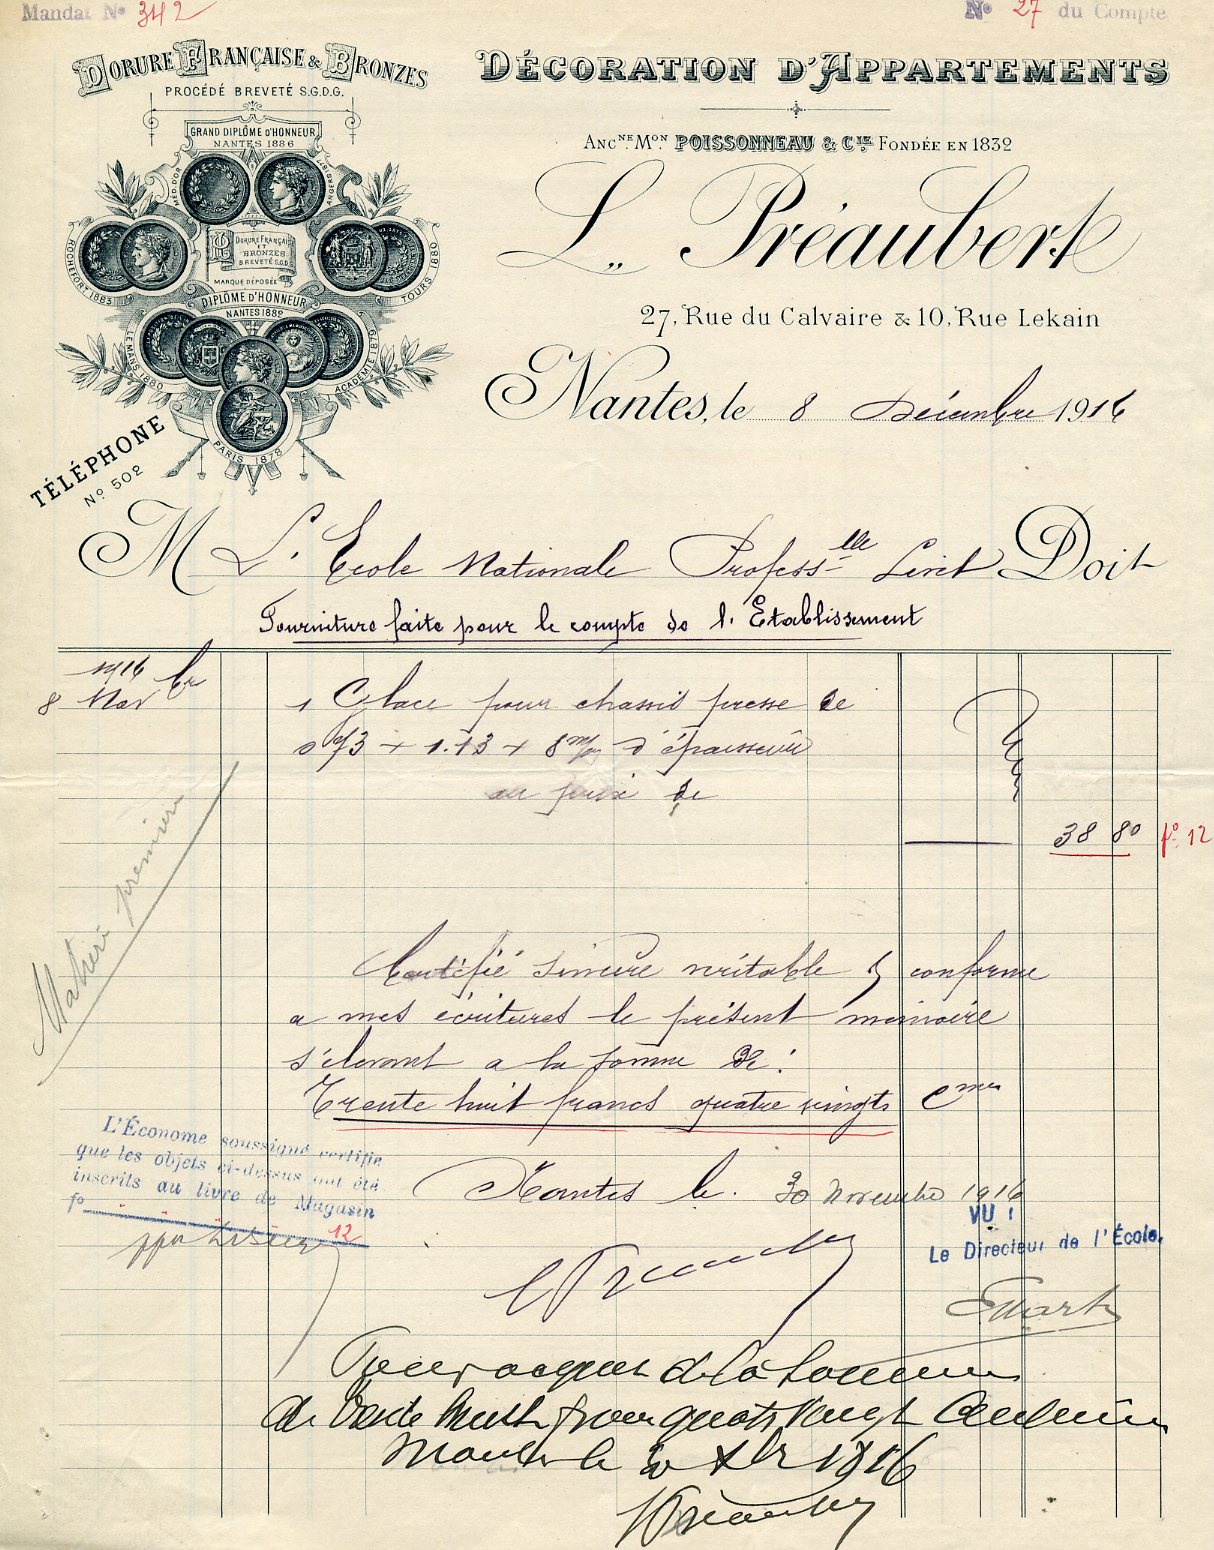 Mandat No 342
No 27 du Compte
DORURE FRANÇAISE & BRONZES
PROCÉDÉ BREVETÉ S.G.D.G.
GRAND DIPLÔME D'HONNEUR
NANTES 1886
MED. D'OR
ROCHEFORT 1883
TOURS 1880
DORURE FRANÇAISE
ET
BRONZES
BREVETÉ S.G.D.G.
MARQUE DÉPOSÉE
DIPLÔME D'HONNEUR
NANTES 1882
LE MANS 1880
ACADEMIE 1879
PARIS 1878
TÉLÉPHONE
No 502
DÉCORATION D'APPARTEMENTS
ANCNE MON POISSONNEAU & CIE FONDÉE EN 1832
L. Préaubert
27, Rue du Calvaire & 10, Rue Lekain
Nantes, le 8 Décembre 1916
M L'Ecole Nationale Professlle Livet Doit
Fourniture faite pour le compte de l'Etablissement
1916
8 Novbre
1 Glace pour chassis presse de
0 73 + 1.13 + 8 m/m d'épaisseur
au prix de
38 80 fo 12
Matière première
Certifié sincère véritable & conforme
a mes écritures le présent mémoire
s'élevant a la somme de :
Trente huit francs quatre vingts Cmes
L'Économe soussigné certifie
que les objets ci-dessus ont été
inscrits au livre de Magasin
fo 12
Nantes le 30 Novembre 1916
VU :
Le Directeur de l'École,
L Préaubert
Pour acquit de la somme
de trente huit francs quatre vingt centimes
Nantes le 30 Xbr 1916
L Préaubert